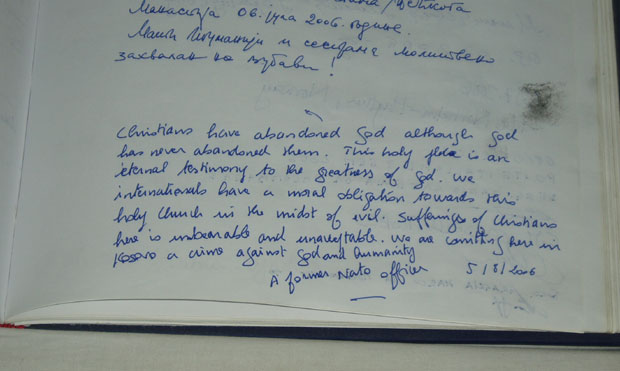 Манастира 06. јула 2006. године.
Мати Игуманији и сестрама молитвено
захвалан на љубави!
Christians have abandoned God although God
has never abandoned them. This holy place is an
eternal testimony to the greatness of God. We
internationals have a moral obligation towards this
holy Church in the midst of evil. Sufferings of Christians
here is unbearable and unacceptable. We are comitting here in
Kosovo a crime against God and humanity
A former Nato officer 5/8/2006